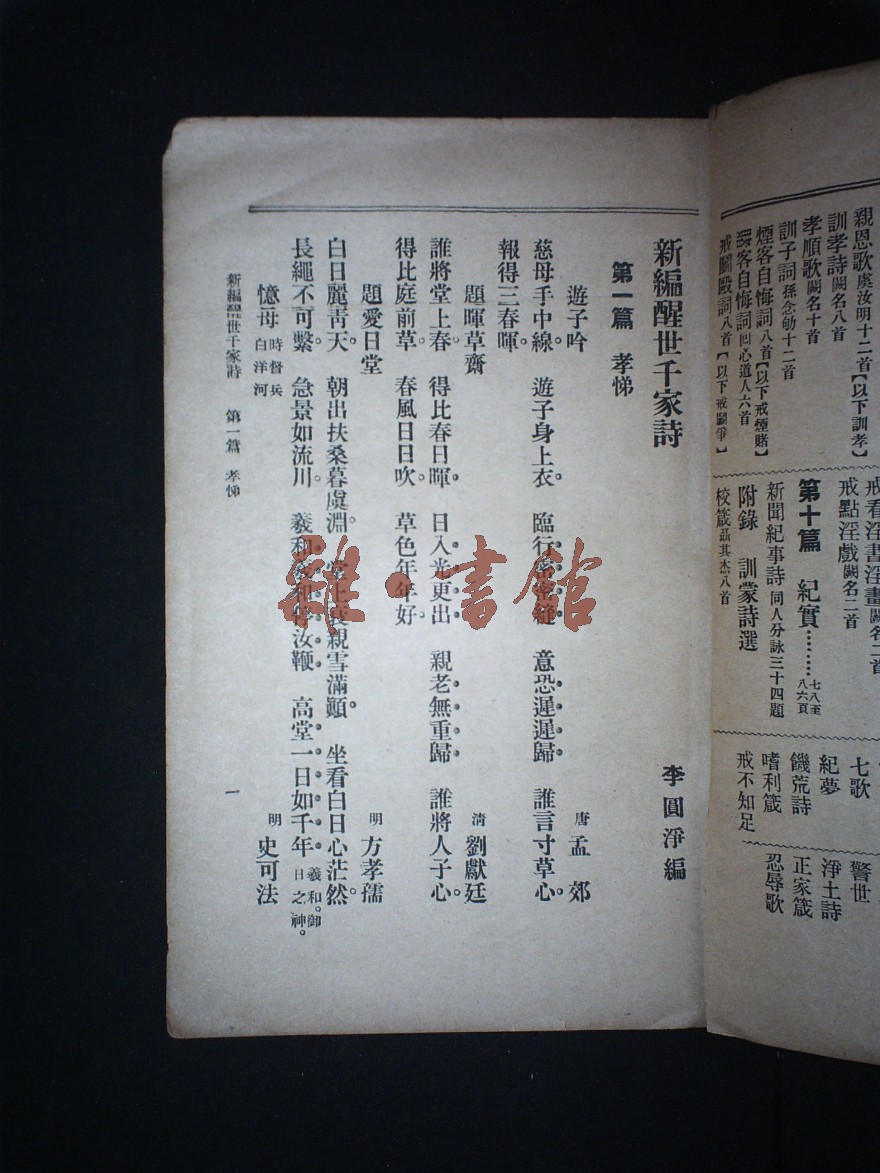 親恩歌虞汝明十二首【以下訓孝】
訓孝詩闕名八首
孝順歌闕名十首
訓子詞孫念劬十二首
煙客自悔詞八首【以下戒煙賭】
賭客自悔詞回心道人六首
戒鬭毆詞八首【以下戒鬭爭】
戒看淫書淫畫闕名二首
戒點淫戲闕名二首
第十篇 紀實………七八至八六頁
新聞紀事詩 同人分詠三十四題
附錄 訓蒙詩選
校箴聶其杰八首
七歌
紀夢
饑荒詩
嗜利箴
戒不知足
警世
淨土詩
正家箴
忍辱歌
新編醒世千家詩 李圓淨編
第一篇 孝悌
遊子吟 唐 孟郊
慈母手中線。遊子身上衣。臨行密密縫 意恐遲遲歸 誰言寸草心。
報得三春暉。
題暉草齋 清 劉獻廷
誰將堂上春。得比春日暉。日入光更出 親老無重歸 誰將人子心。
得比庭前草。春風日日吹。草色年年好。
題愛日堂 明 方孝孺
白日麗靑天。朝出扶桑暮虞淵。堂上衰親雪滿顚。坐看白日心茫然。
長繩不可繫。急景如流川。羲和羲和停汝鞭 高堂一日如千年 羲和。御日之神。
憶母 時督兵白洋河 明 史可法
新編醒世千家詩 第一篇 孝悌 一
雜·書館